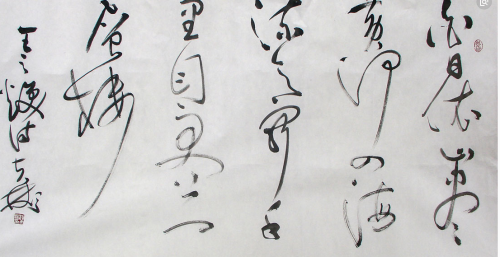 白日依山尽
黄河入海
流欲穷千
里目更上一
层楼
王之涣诗